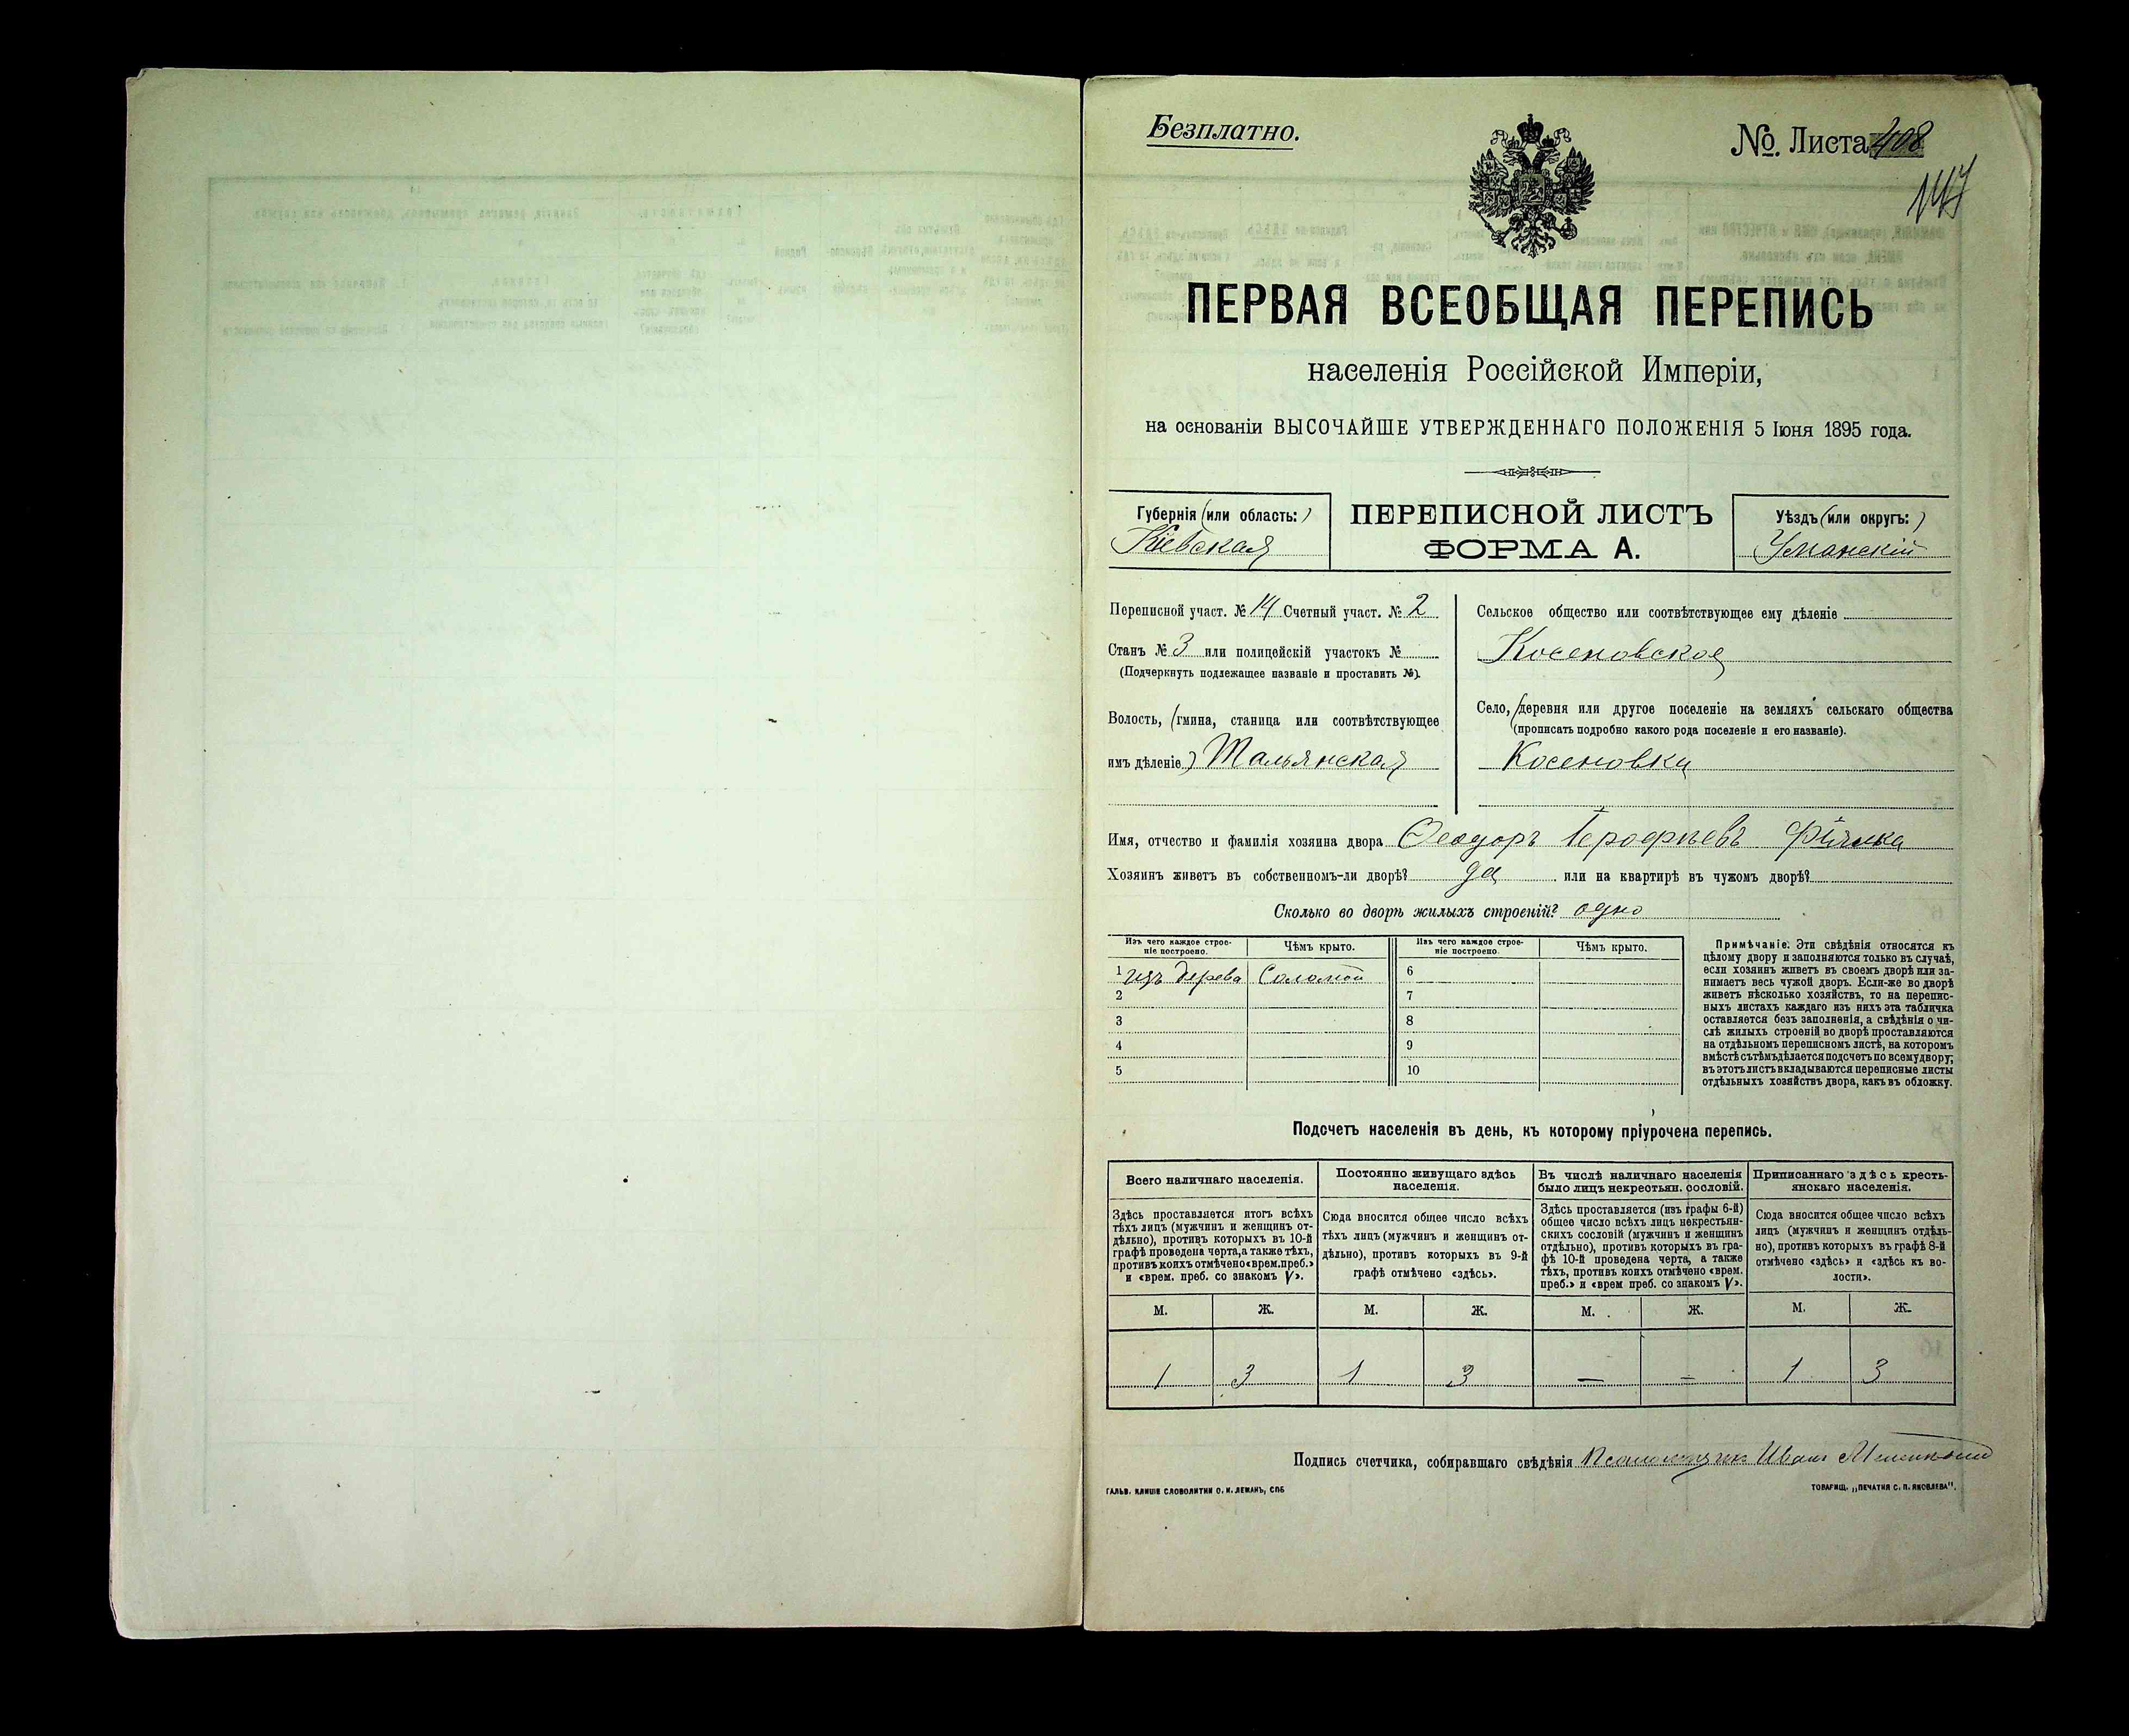 Безплатно.
№. Листа 408
147
ПЕРВАЯ ВСЕОБЩАЯ ПЕРЕПИСЬ
населенія Россійской Имперіи,
на основаніи ВЫСОЧАЙШЕ УТВЕРЖДЕННАГО ПОЛОЖЕНІЯ 5 Іюня 1895 года.
Губернія (или область:)
Кіевская
ПЕРЕПИСНОЙ ЛИСТЪ
ФОРМА А.
Уѣздъ (или округъ:)
Уманскій
Переписной участ. № 14 Счетный участ. № 2
Станъ № 3 или полицейскій участокъ №
(Подчеркнуть подлежащее названіе и проставить №).
Волость, (гмина, станица или соотвѣтствующее
имъ дѣленіе) Тальянская
Сельское общество или соотвѣтствующее ему дѣленіе
Косеновское
Село, (деревня или другое поселеніе на земляхъ сельскаго общества
(прописать подробно какого рода поселеніе и его названіе).
Косеновка
Имя, отчество и фамилія хозяина двора Ѳеодоръ Іерофѣевъ
Хозяинъ живетъ въ собственномъ-ли дворѣ? да или на квартирѣ въ чужомъ дворѣ?
Сколько во дворѣ жилыхъ строеній? одно
Изъ чего каждое строе-
ніе построено.
Чѣмъ крыто.
Изъ чего каждое строе-
ніе построено.
Чѣмъ крыто.
1 изъ дерева Соломой 6
2 7
3 8
4 9
5 10
Примѣчаніе. Эти свѣдѣнія относятся къ
цѣлому двору и заполняются только въ случаѣ,
если хозяинъ живетъ въ своемъ дворѣ или за-
нимаетъ весь чужой дворъ. Если-же во дворѣ
живетъ нѣсколько хозяйствъ, то на перепис-
ныхъ листахъ каждаго изъ нихъ эта табличка
оставляется безъ заполненія, а свѣдѣнія о чи-
слѣ жилыхъ строеній во дворѣ проставляются
на отдѣльномъ переписномъ листѣ, на которомъ
вмѣстѣ съ тѣмъ дѣлается подсчетъ по всему двору;
въ этотъ листъ вкладываются переписные листы
отдѣльныхъ хозяйствъ двора, какъ въ обложку.
Подсчетъ населенія въ день, къ которому пріурочена перепись.
Всего наличнаго населенія.
Здѣсь проставляется итогъ всѣхъ
тѣхъ лицъ (мужчинъ и женщинъ от-
дѣльно), противъ которыхъ въ 10-й
графѣ проведена черта, а также тѣхъ,
противъ коихъ отмѣчено «врем. преб.»
и «врем. преб. со знакомъ V».
Постоянно живущаго здѣсь
населенія.
Сюда вносится общее число всѣхъ
тѣхъ лицъ (мужчинъ и женщинъ от-
дѣльно), противъ которыхъ въ 9-й
графѣ отмѣчено «здѣсь».
Въ числѣ наличнаго населенія
было лицъ некрестьян. сословій.
Здѣсь проставляется (изъ графы 6-й)
общее число всѣхъ лицъ некрестьян-
скихъ сословій (мужчинъ и женщинъ
отдѣльно), противъ которыхъ въ гра-
фѣ 10-й проведена черта, а также
тѣхъ, противъ коихъ отмѣчено «врем.
преб.» и «врем преб. со знакомъ V».
Приписаннаго здѣсь кресть-
янскаго населенія.
Сюда вносится общее число всѣхъ
лицъ (мужчинъ и женщинъ отдѣль-
но), противъ которыхъ въ графѣ 8-й
отмѣчено «здѣсь» и «здѣсь къ во-
лости».
М. Ж. М. Ж. М. Ж. М. Ж.
1 3 1 3 — — 1 3
Подпись счетчика, собиравшаго свѣдѣнія Псаломщикъ Иванъ
ГАЛЬВ. КЛИШЕ СЛОВОЛИТНИ О. И. ЛЕМАНЪ, СПБ
ТОВАРИЩ. „ПЕЧАТНЯ С. П. ЯКОВЛЕВА".